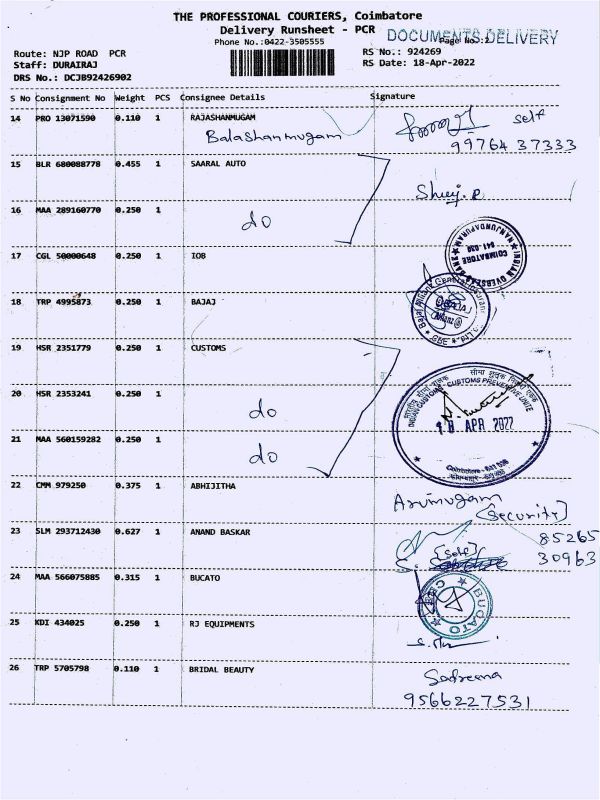 THE PROFESSIONAL COURIERS, Coimbatore
Delivery Runsheet - PCR
DOCUMENTS DELIVERY
Phone No.:0422-3505555
Page No.:2
Route: NJP ROAD PCR
RS No.: 924269
Staff: DURAIRAJ
RS Date: 18-Apr-2022
DRS No.: DCJB92426902
S No Consignment No Weight PCS Consignee Details Signature
14 PRO 13071590 0.110 1 RAJASHANMUGAM
Balashanmugam
self
99764 37333
15 BLR 680088778 0.455 1 SAARAL AUTO
16 MAA 289160770 0.250 1
do
17 CGL 50000648 0.250 1 IOB
INDIAN OVERSEAS BANK
NANJUNDAPURAM
COIMBATORE
641-036
18 TRP 4995873 0.250 1 BAJAJ
Bajaj Allianz General Insurance
BAJAJ
Allianz
CBE
19 HSR 2351779 0.250 1 CUSTOMS
20 HSR 2353241 0.250 1
do
INDIAN CUSTOMS, CUSTOMS PREVENTIVE UNIT
18 APR 2022
21 MAA 560159282 0.250 1
do
22 CMM 979250 0.375 1 ABHIJITHA
Arumugam
[Security]
85265
30963
23 SLM 293712430 0.627 1 ANAND BASKAR
24 MAA 566075885 0.315 1 BUCATO
BUCATO
CBE
25 KDI 434025 0.250 1 RJ EQUIPMENTS
26 TRP 5705798 0.110 1 BRIDAL BEAUTY
Sabreena
9566227531